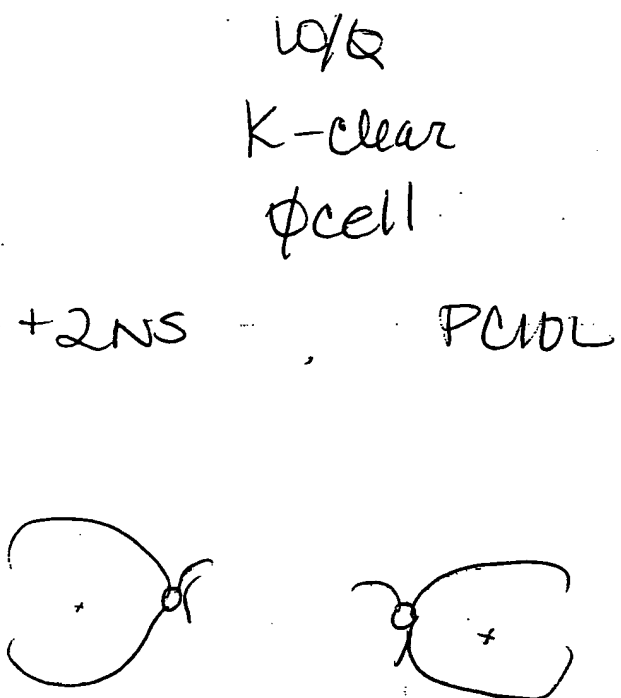 W/Q
K-clear
φcell
+2NS PCIOL